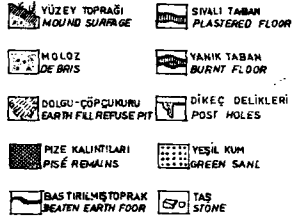 YÜZEY TOPRAĞI
MOUND SURFACE
MOLOZ
DEBRIS
DOLGU-ÇÖPÇUKURU
EARTH FILL REFUSE PIT
PIZE KALINTILARI
PISÉ REMAINS
BASTIRILMIŞTOPRAK
BEATEN EARTH FOOR
SIVALI TABAN
PLASTERED FLOOR
YANIK TABAN
BURNT FLOOR
DİKEÇ DELIKLERİ
POST HOLES
YEŞİL KUM
GREEN SANL
TAŞ
STONE